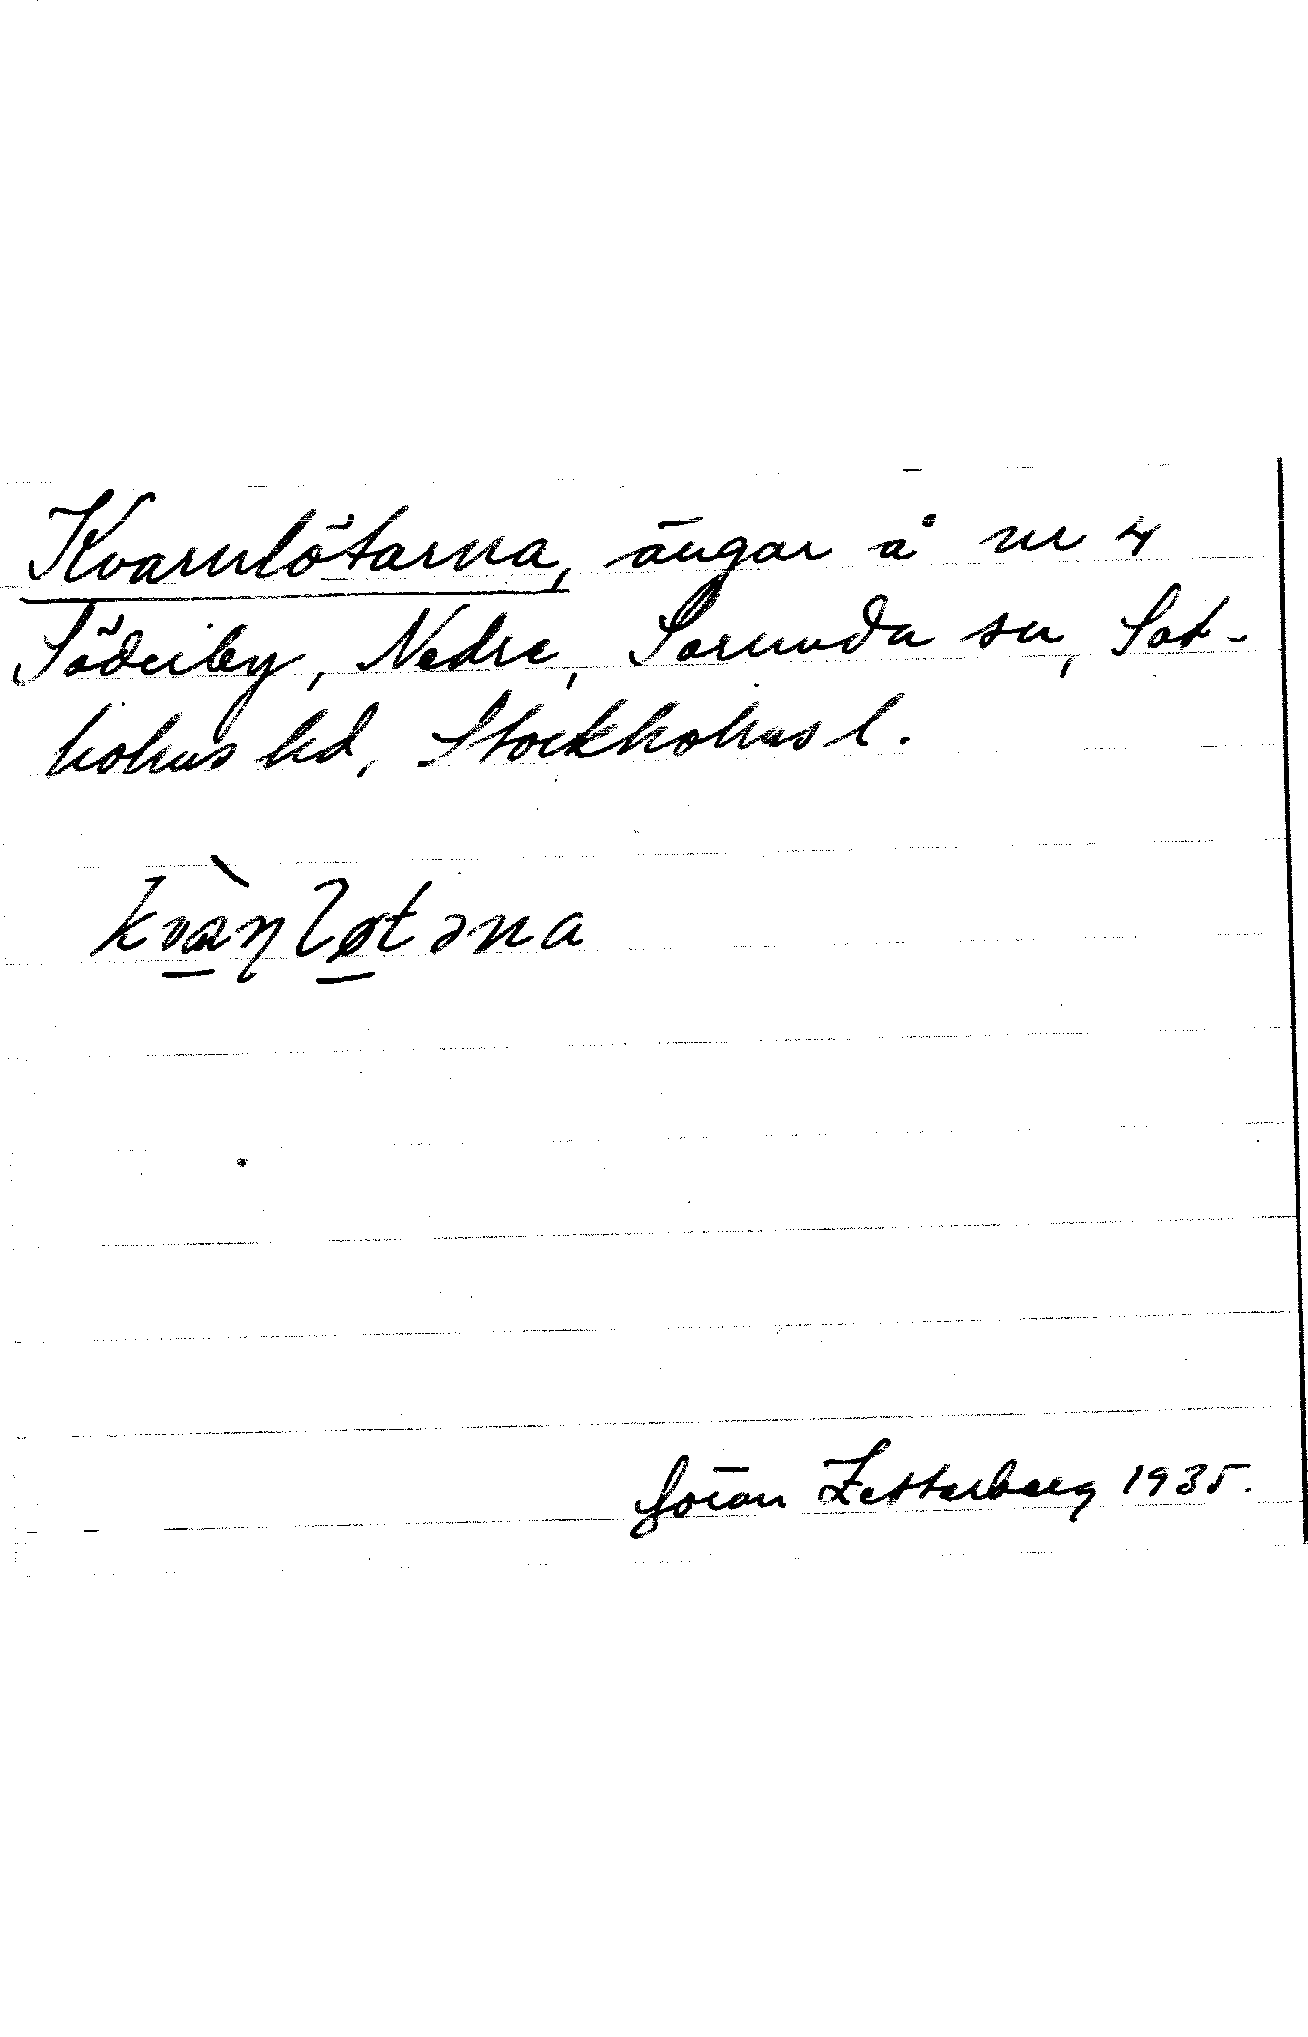 Kvarnlötarna, ängar å nr 4
Söderby, Nedre, Sorunda sn, Sot-
holms hd, Stockholms l.
kvàṇløtəna
Göran Zetterberg 1935.